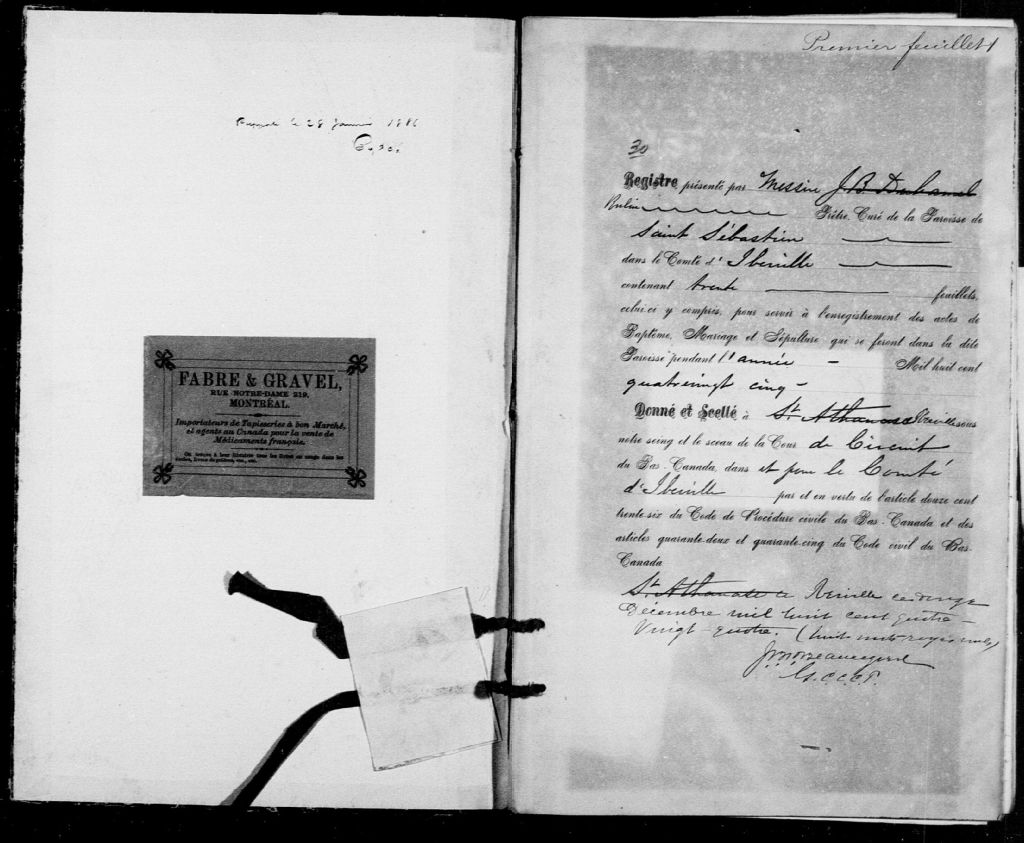 le 28 1886
FABRE & GRAVEL,
RUE NOTRE-DAME 219,
MONTRÉAL.
Importateurs de Tapisseries à bon Marché,
et agents au Canada pour la vente de
Médicaments français.
On trouve à leur librairie tous les livres en usage dans les
écoles, livres de prières, etc., etc.
Premier feuillet 1
30
Registre présenté par Messire J B Duhamel
Prêtre, Curé de la Paroisse de
Saint Sébastien
dans le Comté d' Iberville
contenant trente feuillets,
celui-ci y compris, pour servir à l'enregistrement des actes de
Baptême, Mariage et Sépulture, qui se feront dans la dite
Paroisse pendant l'année Mil huit cent
quatrevingt cinq -
Donné et Scellé à St. Athanase sous
notre seing et le sceau de la Cour de Circuit
du Bas-Canada, dans et pour le Comté
d'Iberville par et en vertu de l'article douze cent
trente-six du Code de Procédure civile du Bas-Canada et des
articles quarante-deux et quarante-cinq du Code civil du Bas-
Canada
St. Athanase ce
Décembre mil huit cent quatre-
Vingt-quatre. (huit mots
G.C.C.C.I.